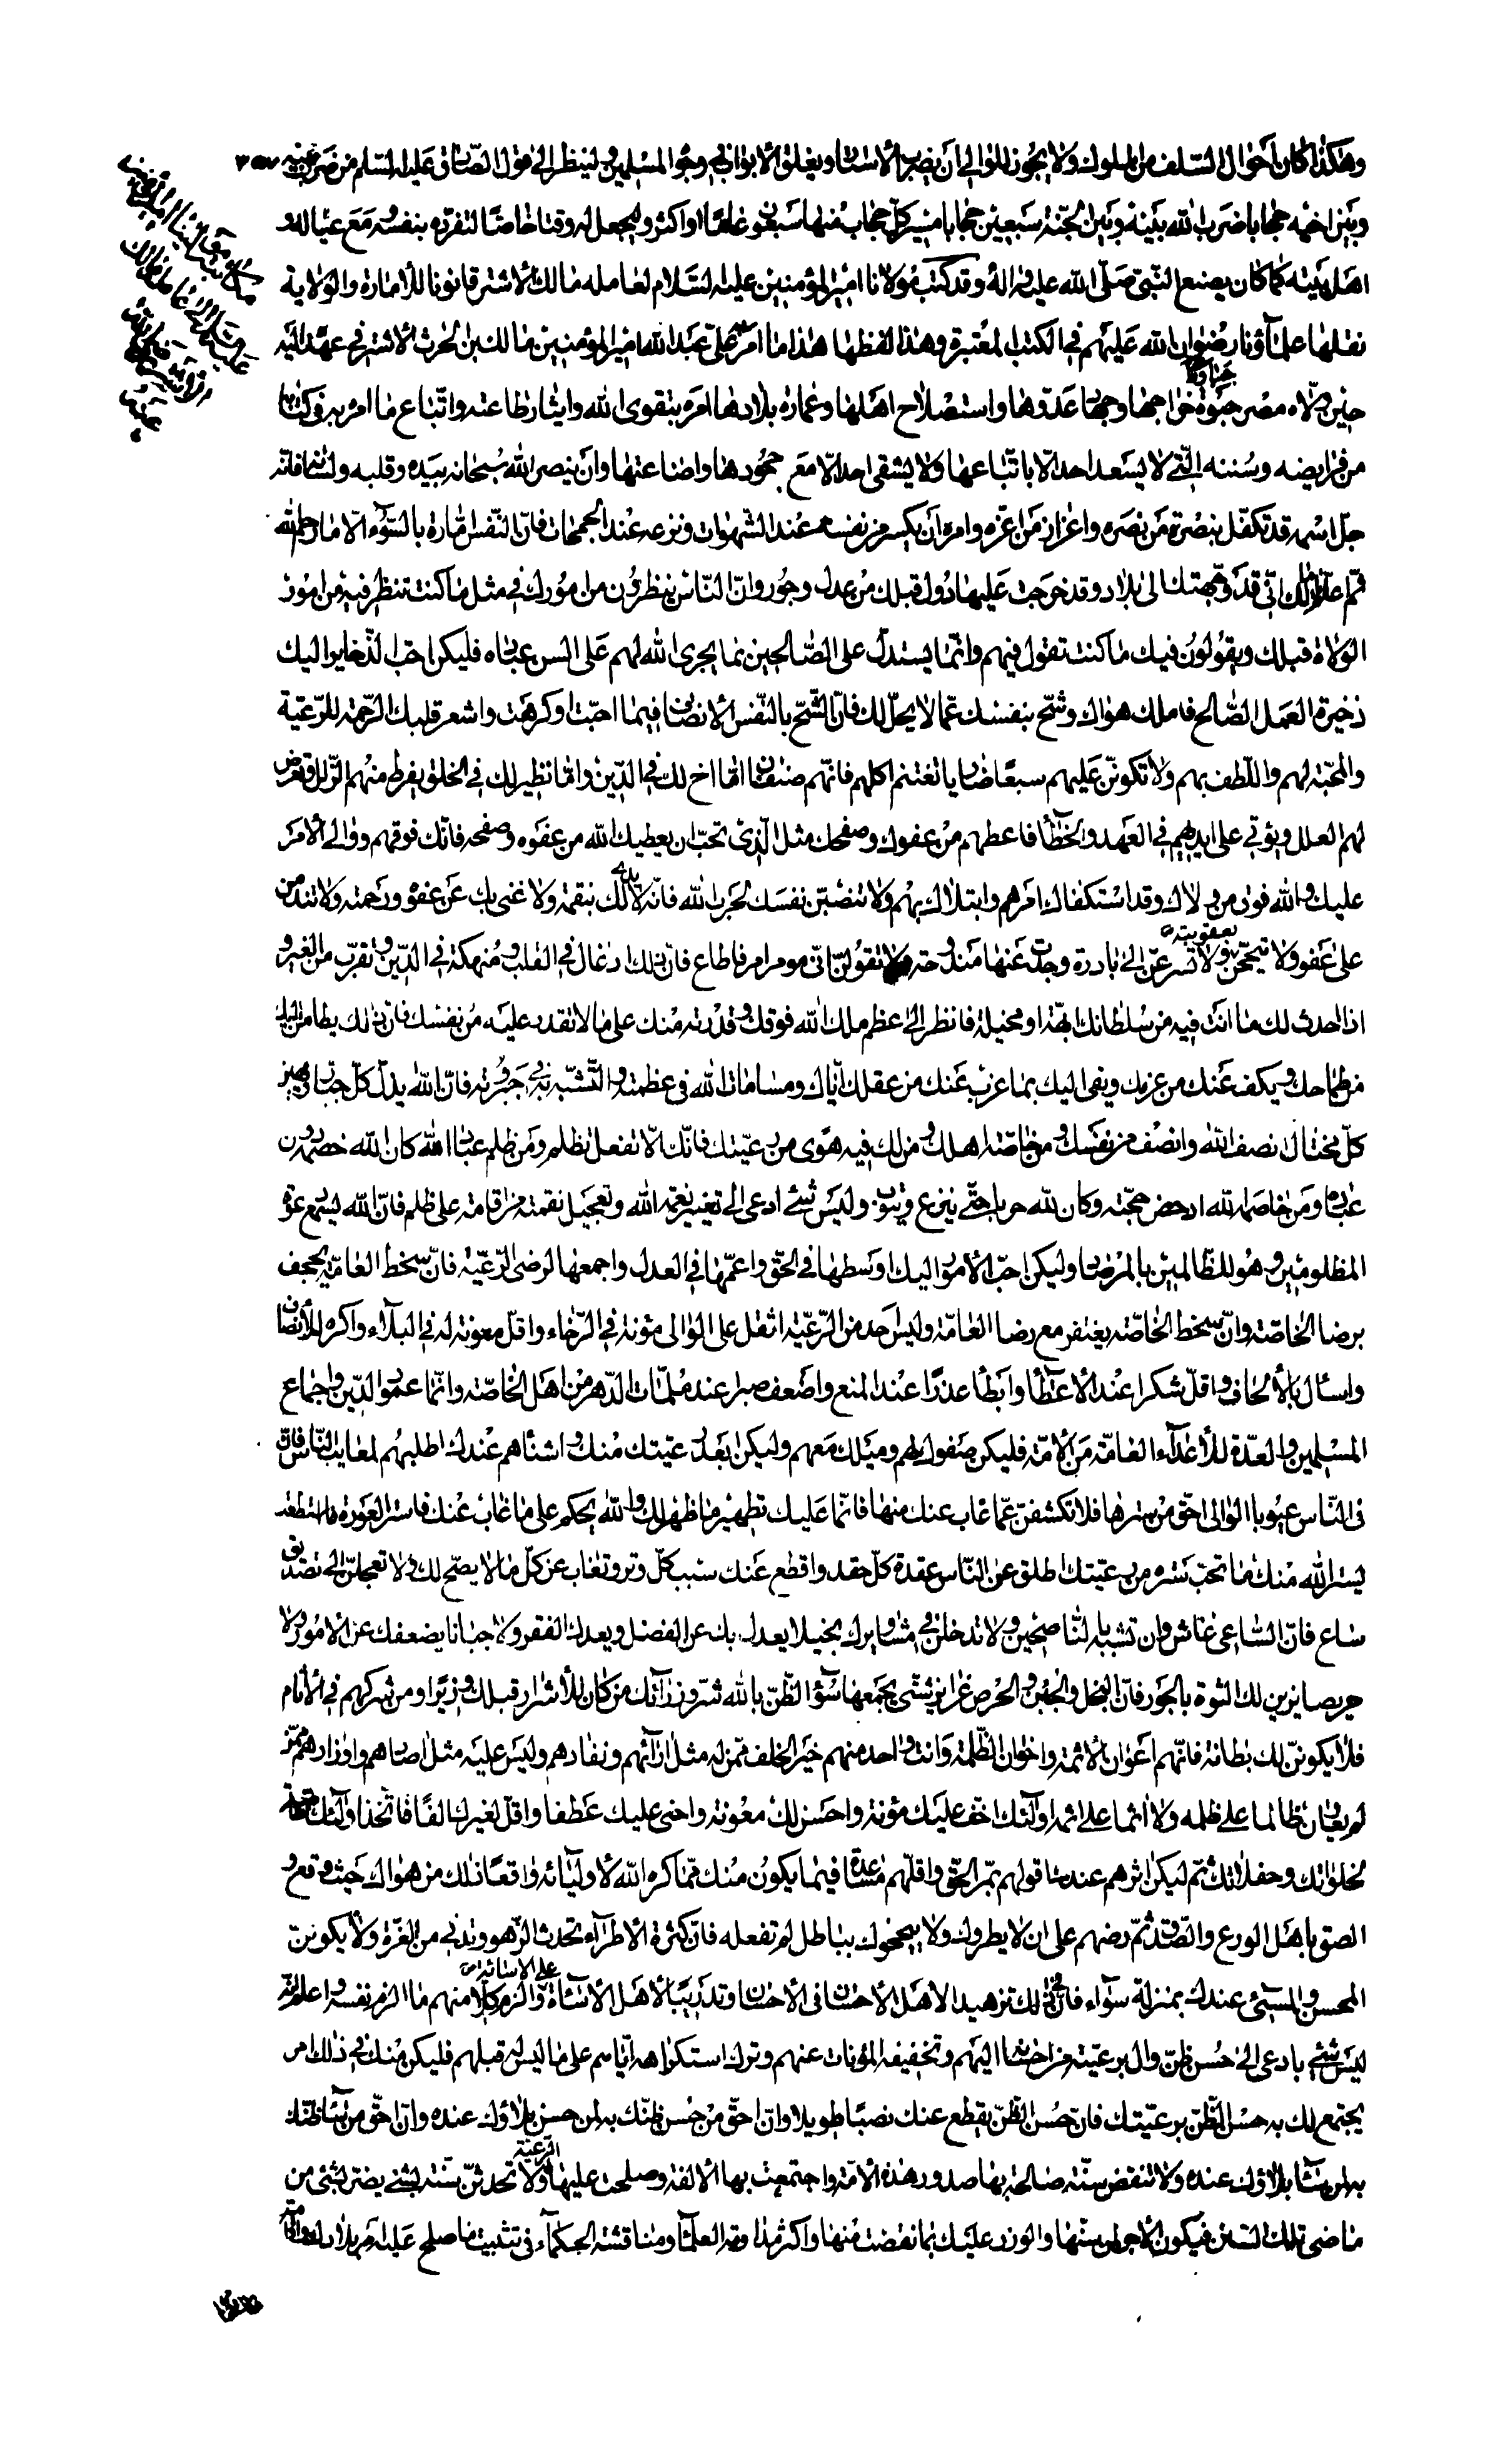 وهكذا كان احوال السلف من الملوك ولا يجوز للوالي ان يضرب الاستار ويغلق الابواب في وجوه المسلمين لينظر الى قول الصادق عليه السلم من ضرب بينه ٣٥٧
وبين اخيه حجابا ضرب الله بينه وبين الجنة سبعين حجابا مسير كل حجاب منها سبعون عاما او اكثر وليجعل له وقتا خاصا لتفرده بنفسه مع عياله و
اهل بيته كما كان يصنع النبي صلى الله عليه واله وقد كتب مولانا امير المؤمنين عليه السلام لعامله مالك الاشتر قانونا للأمارة والولاية
نقلها علمآؤنا رضوان الله عليهم في الكتب المعتبرة وهذا لفظها هذا ما امر به علي عبد الله امير المؤمنين مالك بن الحرث الاشتر في عهده اليه
حين ولاه مصر جبوة خراجها وجهاد عدوها واستصلاح اهلها وعمارة بلادها امره بتقوى الله وايثار طاعته واتباع ما امر به في كتابه
من فرايضه وسننه التي لا يسعد احد الا باتباعها ولا يشقى احد الا مع جحودها واضاعتها وان ينصر الله سبحانه بيده وقلبه ولسانه فانه
جل اسمه قد تكفل بنصرة من نصره واعزاز من اعزه وامره ان يكسر من نفسه عند الشهوات ونزعه عند الجمحات فان النفس امارة بالسوء الا ما رحم الله
ثم اعلم يا مالك اني قد وجهتك الى بلاد وقد خرجت عليها دول قبلك من عدل وجور وان الناس ينظرون من امورك في مثل ما كنت تنظر فيه من امور
الولاة قبلك ويقولون فيك ما كنت تقول فيهم وانما يستدل على الصالحين بما يجرى الله لهم على السن عباده فليكن احب الذخاير اليك
ذخيرة العمل الصالح فاملك هواك وشح بنفسك عما لا يحل لك فان الشح بالنفس الانصاف فيما احبت او كرهت واشعر قلبك الرحمة للرعية
والمحبة لهم واللطف بهم ولا تكونن عليهم سبعا ضاريا تغتنم اكلهم فانهم صنفان اما اخ لك في الدين واما نظير لك في الخلق يفرط منهم الزلل وتعرض
لهم العلل ويؤتى على ايديهم في العمد والخطأ فاعطهم من عفوك وصفحك مثل الذي تحب ان يعطيك الله من عفوه وصفحه فانك فوقهم ووالي الامر
عليك والله فوق من ولاك وقد استكفاك امرهم وابتلاك بهم ولا تنصبن نفسك لحرب الله فانه لا يد لك بنقمته ولا غنى بك عن عفوه ورحمته ولا تندمن
على عفو ولا تبجحن بعقوبة ولا تسرعن الى بادرة وجدت عنها مندوحة ولا تقولن اني مؤمر امر فاطاع فان ذلك ادغال في القلب ومنهكة في الدين وتقرب من الغير و
اذا احدث لك ما انت فيه من سلطانك ابهة او مخيلة فانظر الى عظم ملك الله فوقك وقدرته منك على ما لا تقدر عليه من نفسك فان ذلك يطامن اليك
من طماحك ويكف عنك من غربك ويفئ اليك بما عزب عنك من عقلك اياك ومسامات الله في عظمته والتشبه به في جبروته فان الله يذل كل جبار ويهين
كل مختال انصف الله وانصف من نفسك ومن خاصة اهلك ومن لك فيه هوى من رعيتك فانك الا تفعل تظلم ومن ظلم عباد الله كان الله خصمه دون
عباده ومن خاصمه الله ادحض حجته وكان لله حربا حتى ينزع ويتوب وليس شئ ادعى الى تغيير نعمة الله وتعجيل نقمته من اقامة على ظلم فان الله يسمع دعوة
المظلومين وهو للظالمين بالمرصاد وليكن احب الامور اليك اوسطها في الحق واعمها في العدل واجمعها لرضى الرعية فان سخط العامة يجحف
برضا الخاصة وان سخط الخاصة يغتفر مع رضا العامة وليس احد من الرعية اثقل على الوالى مؤنة في الرخاء واقل معونة له في البلآء واكره للأنصاف
واسئال بالألحاف واقل شكرا عند الاعطآء وابطأ عذرا عند المنع واضعف صبرا عند ملمات الدهر من اهل الخاصة وانما عمود الدين وجماع
المسلمين والعدة للأعدآء العامة من الامة فليكن صغوك لهم وميلك معهم وليكن ابعد رعيتك منك واشناهم عندك اطلبهم لمعايب الناس فان
في الناس عيوبا الوالى احق من سترها فلا تكشفن عما غاب عنك منها فانما عليك تطهير ما ظهر لك والله يحكم على ما غاب عنك فاستر العورة ما استطعت
يستر الله منك ما تحب ستره من رعيتك اطلق عن الناس عقدة كل حقد واقطع عنك سبب كل وتر وتغاب عن كل ما لا يصح لك ولا تعجلن الى تصديق
ساع فان الساعى غاش وان تشبه بالناصحين ولا تدخلن في مشاورتك بخيلا يعدل بك عن الفضل ويعدك الفقر ولا جبانا يضعفك عن الامور ولا
حريصا يزين لك الشره بالجور فان البخل والجبن والحرص غرايز شتى يجمعها سوء الظن بالله شر وزرآئك من كان للأشرار قبلك وزيرا ومن شركهم في الآثام
فلا يكونن لك بطانة فانهم اعوان الاثمة واخوان الظلمة وانت واجد منهم خير الخلف ممن له مثل ارآئهم ونفادهم وليس عليه مثل اصارهم واوزارهم ممن
لم يعاون ظالما على ظلمه ولا اثما على اثمه اولئك اخف عليك مؤنة واحسن لك معونة واحنى عليك عطفا واقل لغيرك الفا فاتخذ اولئك خاصة
لخلواتك وحفلاتك ثم ليكن اثرهم عندك اقولهم بمر الحق واقلهم مساعدة فيما يكون منك مما كره الله لاوليائه واقعا ذلك من هواك حيث وقع و
الصق باهل الورع والصدق ثم رضهم على ان لا يطروك ولا يبجحوك بباطل لم تفعله فان كثرة الاطرآء تحدث الزهو وتدني من الغرة ولا يكونن
المحسن والمسئ عندك بمنزلة سوآء فان في ذلك تزهيدا لاهل الاحسان في الاحسان وتدريبا لاهل الاسائة على الاسائة والزم كلا منهم ما الزم نفسه واعلم انه
ليس شئ بادعى الى حسن ظن وال برعيته من احسانه اليهم وتخفيفه المؤنات عنهم وترك استكراهه اياهم على ما ليس له قبلهم فليكن منك في ذلك امر
يجتمع لك به حسن الظن برعيتك فان حسن الظن يقطع عنك نصبا طويلا وان احق من حسن ظنك به لمن حسن بلاؤك عنده وان احق من سآء ظنك
به لمن سآء بلاؤك عنده ولا تنقض سنة صالحة عمل بها صدور هذه الامة واجتمعت بها الالفة وصلحت عليها الرعية ولا تحدثن سنة بشئ يضر بشئ من
ماضى تلك السنن فيكون الاجر لمن سنها والوزر عليك بما نقضت منها واكثر مدارسة العلمآء ومناقشة الحكمآء في تثبيت ما صلح عليه امر بلادك واقامة